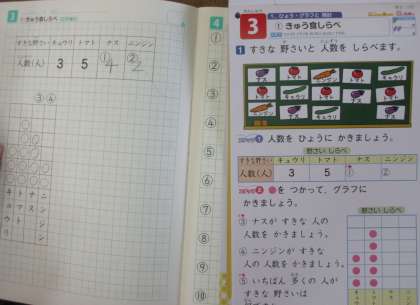 3
①きゅう食しらべ
すきな野さい キュウリ トマト ナス ニンジン
人数(人) 3 5 ①4 ②2
③ ④
キュウリ
トマト
ナス
ニンジン
4
①
②
③
④
⑤
⑥
⑦
⑧
⑨
⑩
3
① きゅう食しらべ
1 すきな 野さいと 人数を しらべます。
ナス トマト ナス キュウリ ナス
トマト キュウリ トマト トマト
ニンジン ナス キュウリ
1 人数を ひょうに かきましょう。
野さいしらべ
すきな野さい キュウリ トマト ナス ニンジン
人数(人) 3 5 ① ②
2 ●を つかって、グラフに
かきましょう。
野さいしらべ
③ ナスが すきな 人の
人数を かきましょう。
④ ニンジンが すきな
人の 人数を かきましょう。
⑤ いちばん 多くの 人が
すきな 野さいは